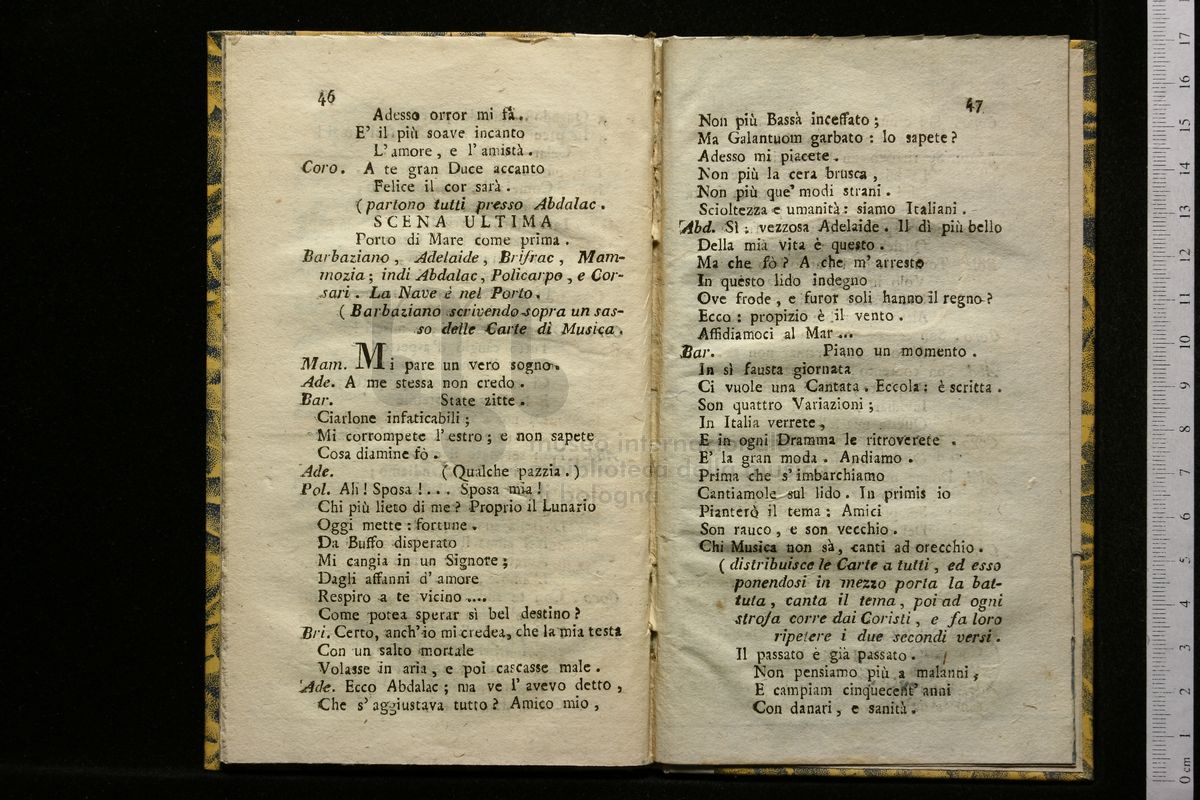 46
Adesso orror mi fà.
E' il più soave incanto
L'amore, e l'amistà.
Coro. A te gran Duce accanto
Felice il cor sarà.
(partono tutti presso Abdalac.
SCENA ULTIMA
Porto di Mare come prima.
Barbaziano, Adelaide, Brisrac, Mam-
mozia; indi Abdalac, Policarpo, e Cor-
sari. La Nave è nel Porto.
(Barbaziano scrivendo sopra un sas-
so delle Carte di Musica.
Mam. Mi pare un vero sogno.
Ade. A me stessa non credo.
Bar. State zitte.
Ciarlone infaticabili;
Mi corrompete l'estro; e non sapete
Cosa diamine fò.
Ade. (Qualche pazzia.)
Pol. Ah! Sposa!... Sposa mia!
Chi più lieto di me? Proprio il Lunario
Oggi mette: fortune.
Da Buffo disperato
Mi cangia in un Signore;
Dagli affanni d'amore
Respiro a te vicino....
Come potea sperar sì bel destino?
Bri. Certo, anch'io mi credea, che la mia testa
Con un salto mortale
Volasse in aria, e poi cascasse male.
Ade. Ecco Abdalac; ma ve l'avevo detto,
Che s'aggiustava tutto? Amico mio,
47
Non più Bassà inceffato;
Ma Galantuom garbato: lo sapete?
Adesso mi piacete.
Non più la cera brusca,
Non più que' modi strani.
Scioltezza e umanità: siamo Italiani.
Abd. Sì: vezzosa Adelaide. Il dì più bello
Della mia vita è questo.
Ma che fò? A che m'arresto
In questo lido indegno
Ove frode, e furor soli hanno il regno?
Ecco: propizio è il vento.
Affidiamoci al Mar...
Bar. Piano un momento.
In sì fausta giornata
Ci vuole una Cantata. Eccola: è scritta.
Son quattro Variazioni;
In Italia verrete,
E in ogni Dramma le ritroverete.
E' la gran moda. Andiamo.
Prima che s'imbarchiamo
Cantiamole sul lido. In primis io
Pianterò il tema: Amici
Son rauco, e son vecchio.
Chi Musica non sà, canti ad orecchio.
(distribuisce le Carte a tutti, ed esso
ponendosi in mezzo porta la bat-
tuta, canta il tema, poi ad ogni
strofa corre dai Coristi, e fa loro
ripetere i due secondi versi.
Il passato è già passato.
Non pensiamo più a malanni,
E campiam cinquecent'anni
Con danari, e sanità.
museo internazionale
biblioteca della musica
di bologna
0 cm 1 2 3 4 5 6 7 8 9 10 11 12 13 14 15 16 17